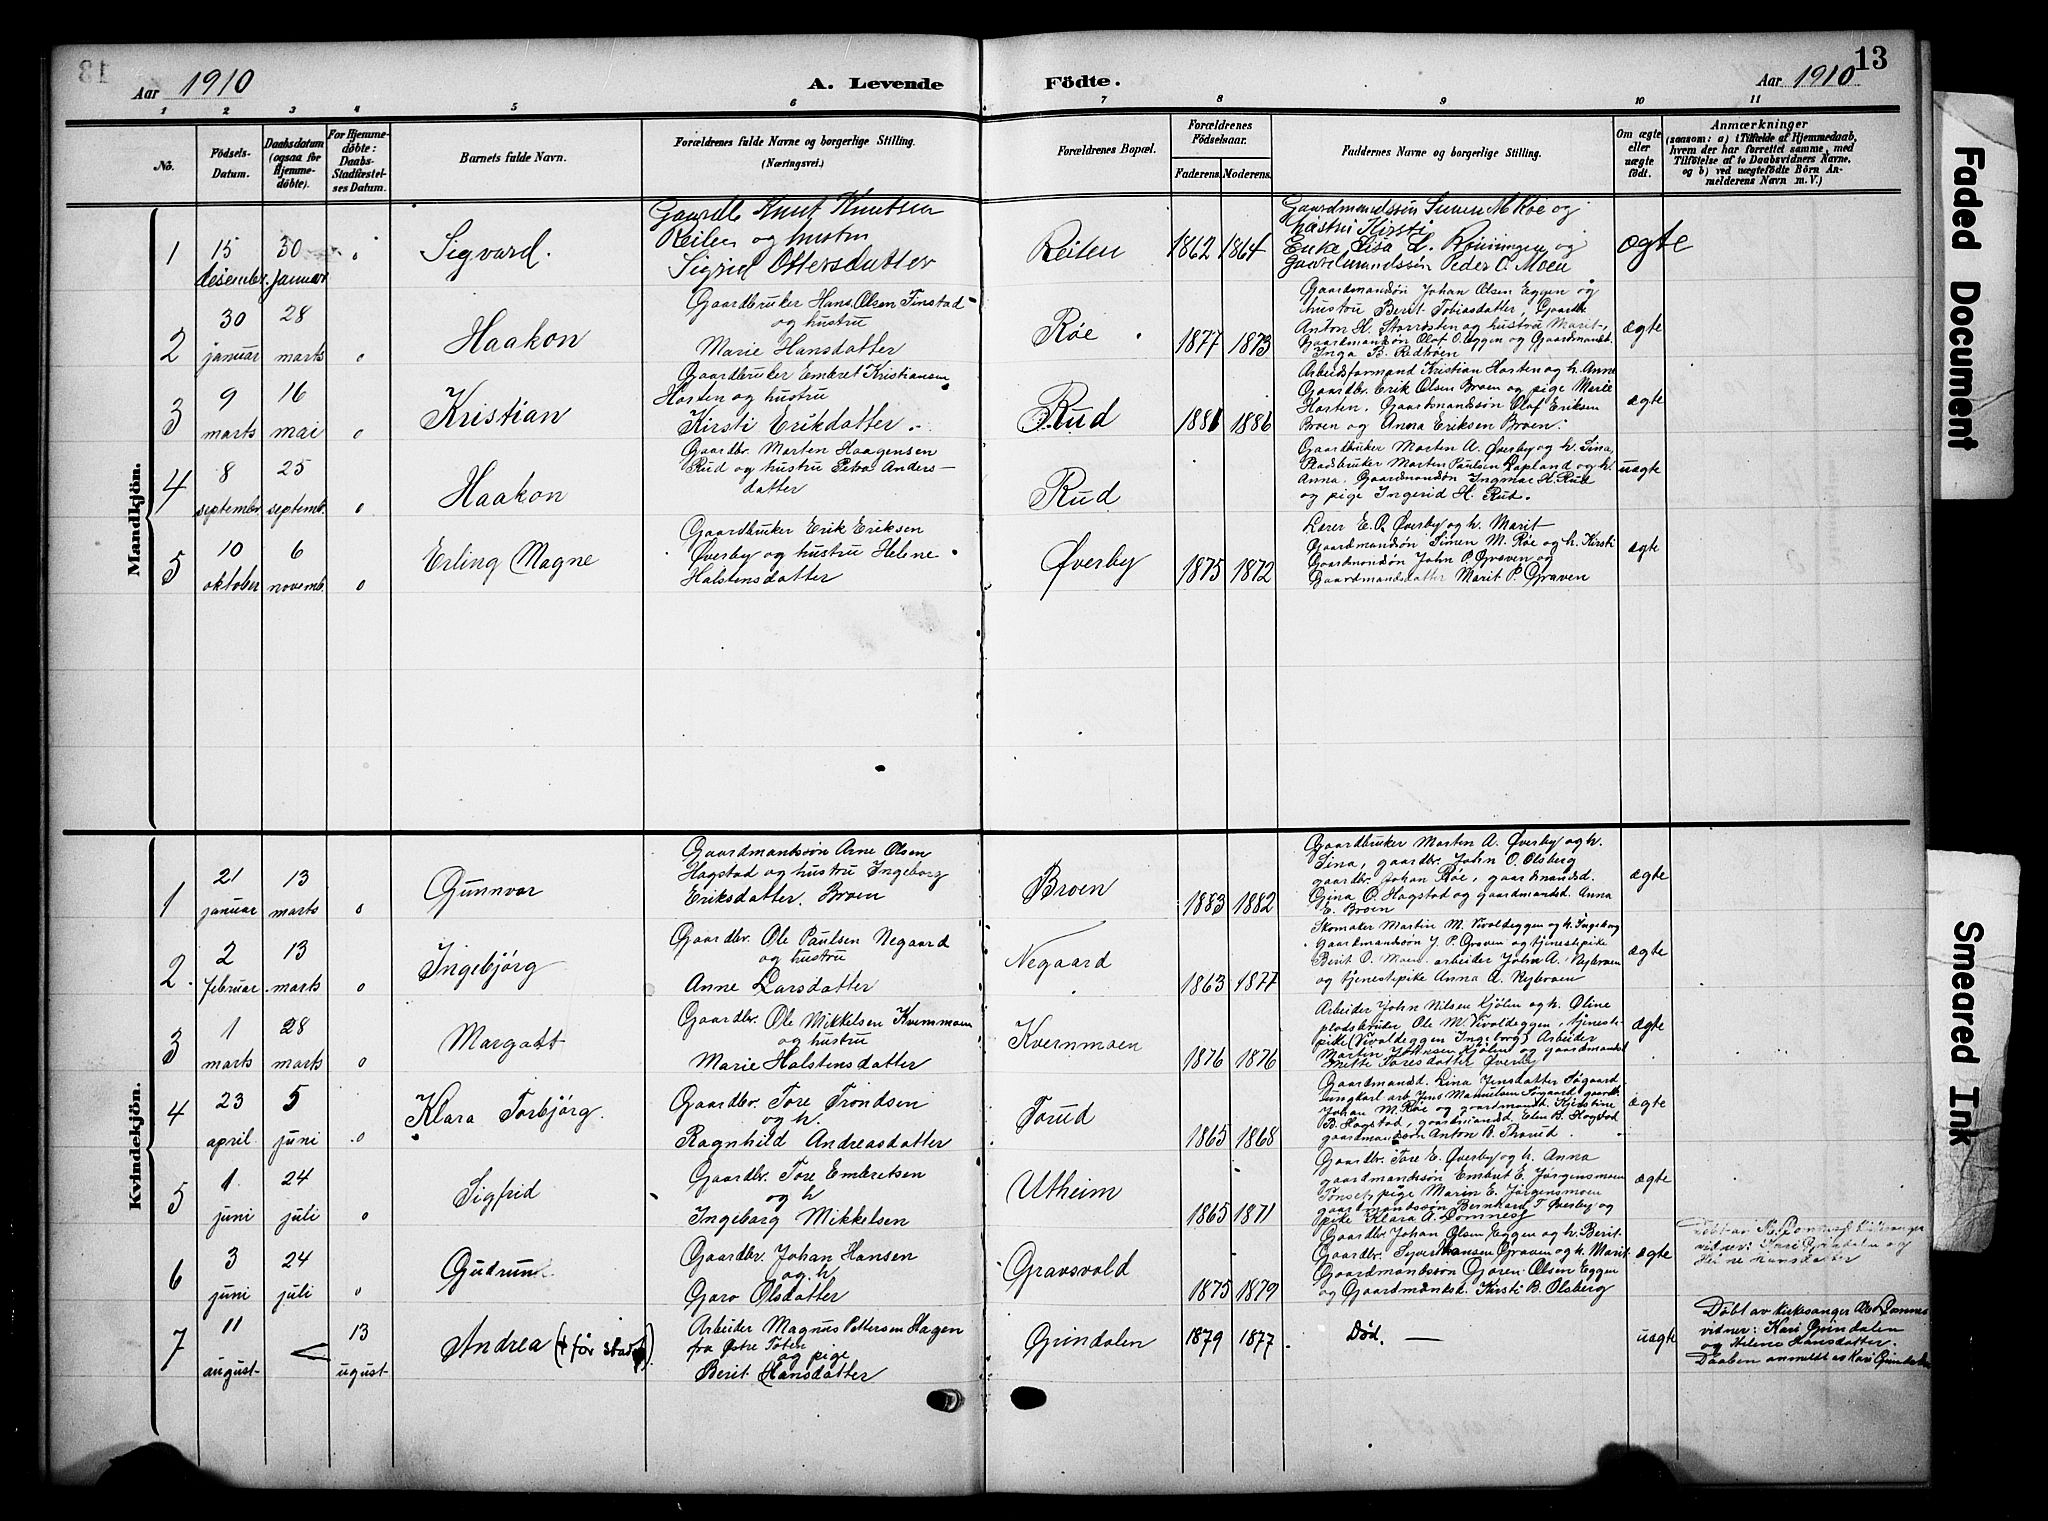 13
Aar 1910
A. Levende Födte.
Aar 1910
1 2 3 4 5 6 7 8 9 10 11
No.
Födsels-Datum.
Daabsdatum (ogsaa for Hjemme-döbte).
For Hjemme-döbte: Daabs-Stadfæstel-ses Datum.
Barnets fulde Navn.
Forældrenes fulde Navne og borgerlige Stilling.
(Næringsvei.)
Forældrenes Bopæl.
Forældrenes Födselsaar.
Faderens. Moderens.
Faddernes Navne og borgerlige Stilling.
Om ægte eller uægte födt.
Anmærkninger
(saasom: a) i Tilfælde af Hjemmedaab,
hvem der har forrettet samme, med
Tilföielse af to Daabsvidners Navne.
og b) ved uægtefödte Börn An-
melderens Navn m. V.)
Mandkjön.
1
15 desember
30 januar
Sigvard.
Gaardb Knut Knutsen
Reiten og hustru
Sigrid Ottersdatter
Reiten
1862 1864
Gaardmandssön Simen M Röe og
hustru Kirsti
Enke Lisa L. Rönningen og
Gaardmandssön Peder O. Moen
ægte
2
30 januar
28 marts
0
Haakon
Gaardbruker Hans Olsen Finstad
og hustru
Marie Hansdatter
Røe
1877 1873
Gaardmandsøn Johan Olsen Eggen og
hustru Berit Tobiasdatter, Gaardb
Anton H. Storrøsten og hustru Marit,
Gaardmandsøn Olof O. Eggen og Gaardmandsd.
Inga B. Rødtrøen
ægte
3
9 marts
16 mai
0
Kristian
Gaardbruker Embret Kristiansen
Horten og hustru
Kirsti Erikdatter
Rud
1881 1886
Arbeidsformand Kristian Horten og h. Anne
Gaardbr. Erik Olsen Broen og pige Marie
Horten. Gaardmandssøn Olof Eriksen
Broen og Anna Eriksen Broen.
ægte
4
8 september
25 septemb.
0
Haakon
Gaardbr. Morten Haagensen
Rud og hustru Petra Anders-
datter
Rud
Gaardbruker Morten A. Øverby og h. Lina,
Pladsbruker Morten Paulsen Lapland og h.
Anna. Gaardmandsøn Ingmar H. Rud
og pige Ingerid H. Rud.
uægte
5
10 oktober
6 novemb.
0
Erling Magne
Gaardbruker Erik Eriksen
Øverby og hustru Helene
Halstensdatter
Øverby
1875 1872
Lærer E. O. Øverby og h. Marit
Gaardmandsøn Simen M. Røe og h. Kirsti
Gaardmandsøn John P. Graven og
Gaardmandsdatter Marit P. Graven
ægte
Kvindekjön.
1
21 januar
13 marts
0
Gunnvor
Gaardmandssøn Arne Olsen
Hagstad og hustru Ingeborg
Eriksdatter. Broen
Broen
1883 1882
Gaardbruker Morten A. Øverby og h.
Lina, gaardbr. John O. Olsberg
gaardbr. Johan Røe, gaardmandsd.
Gina O. Hagstad og gaardmandsd. Anna
E. Broen
ægte
2.
2 februar
13 marts
0
Ingebjørg
Gaardbr. Ole Paulsen Negaard
og hustru
Anne Larsdatter
Negaard
1863 1877
Skomaker Martin M. Tivoldeggen og h. Ingeborg
Gaardmandssøn J. P. Graven og tjenestepike
Berit O. Moen. arbeider John A. Nybroen
og tjenestpike Anna A. Nybroen
ægte
3
1 marts
28 marts
0
Margott
Gaardbr. Ole Mikkelsen Kvernmoen
og hustru
Marie Halstensdatter
Kvernmoen
1876 1876
Arbeider John Nilsen Kjølen og h. Oline
pladsbruker Ole M. Tivoldeggen, tjeneste-
pike (Tivoldeggen Ingeborg) Arbeider
Martin Johnsen Kjølen og gaardmandsd
Mette Toresdatter Øverby
ægte
4
23 april
5 juni
0
Klara Torbjørg.
Gaardbr. Tore Trondsen
og h.
Ragnhild Andreasdatter
Torud
1865 1868
Gaardmandsd. Lina Jensdatter Søgaard
ungkarl arb Jens Søgaard, gaardb.
Johan M. Røe og gaardmandsd. Kirstine
B. Hagstad, gaardmandsd Elen B. Hagstad
gaardmandssøn Anton B. Thorud.
ægte
5
1. juni
24 juli
0
Sigfrid
Gaardbr. Tore Embretsen
og h
Ingeborg Mikkelsen
Utheim
1865 1871
Gaardbr. Tore E. Øverby og h. Anna
gaardmandssøn Embret E. Jørgensmoen
Tønset, pige Marin E. Jørgensmoen
gaardmandssøn Bernhard T Øverby og
pike Klara A. Domnes
ægte
6
3 juni
24 juli
0
Gudrun
Gaardbr. Johan Hansen
og h
Goro Olsdatter
Gravsvold
1875 1879
Gaardbr Johan Olsen Eggen og h. Berit.
Gaardbr. Syver Hansen Graven og h. Marit
Gaardmandssøn Gjøren Olsen Eggen
og Gaardmandsd. Kirsti B. Olsberg
ægte
7
11 august
13 ugust
Andrea (+ før stadf.)
Arbeider Magnus Pettersen Hagen
fra Østre Toten
og pige
Berit Hansdatter
Grindalen
1879 1877
Død. —
uægte
Døbt av kirkesanger Domnes
vidner: Kari Grindalen
og Helene Hansdatter.
Daaben anmeldt av Kari Grindalen
Faded Document
Smeared Ink